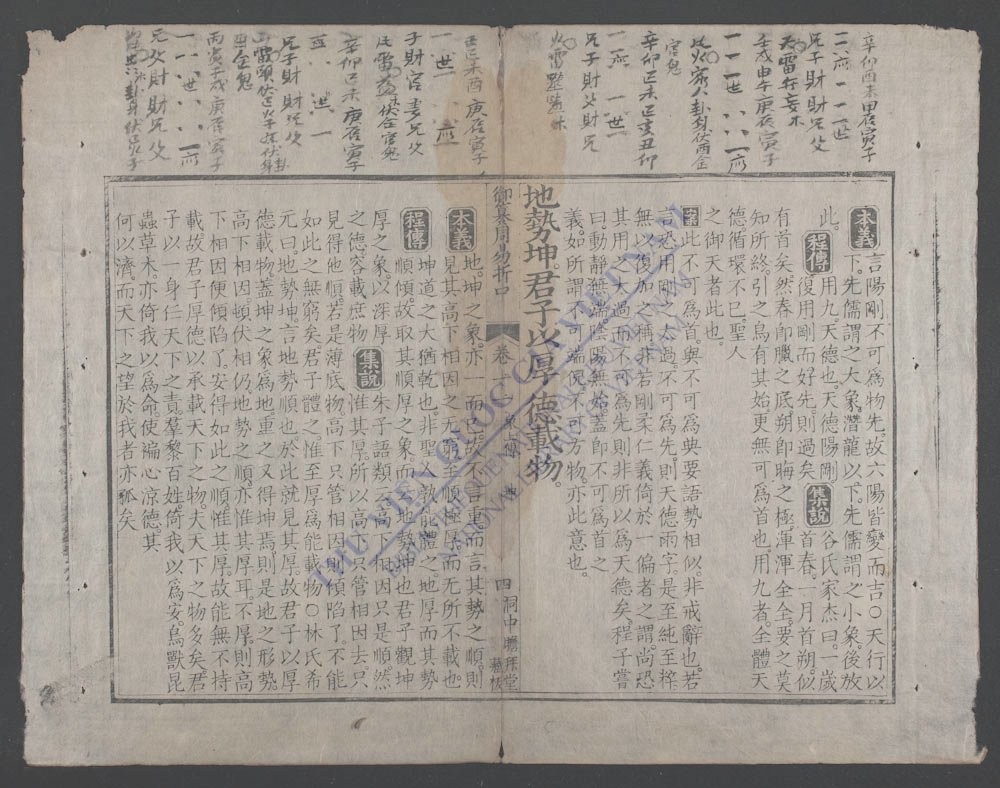 辛卯酉未甲辰寅子
兄子財財兄父
天雷行妄未
壬戌申午庚辰寅子
官鬼
辛卯巳未巳亥丑卯
兄子財父財兄
子財官妻兄父
辛卯巳未庚辰寅子
兄子財財兄父
丙寅子戌庚辰寅子
兄父財財兄父
本義
言陽剛不可爲物先故六陽皆變而吉○天行以
下先儒謂之大象潛龍以下先儒謂之小象後放
此程傳用九天德也天德陽剛集說谷氏家杰曰一歲
復用剛而好先則過矣首春一月首朔似
有首矣然春即臘之底朔即晦之極渾渾全全要之莫
知所終引之烏有其始更無可爲首也用九者全體天
德循環不已聖人
之御天者此也
案此不可爲首與不可爲典要語勢相似非戒辭也若
言恐用剛之太過不可爲先則天德兩字是至純至粹
無以復加之稱非若剛柔仁義倚於一偏者之謂尚恐
其用之太過而不可爲先則非所以爲天德矣程子嘗
曰動靜無端陰陽無始蓋即不可爲首之
義如所謂不可端倪不可方物亦此意也
地勢坤君子以厚德載物
御纂周易折中
卷十一
象上傳
坤
四
洞中
本義地坤之象亦一而已故不言重而言其勢之順則
見其高下相因之无窮至順極厚而无所不載也
程傳坤道之大猶乾也非聖人孰能體之地厚而其勢
順傾故取其順厚之象而云地勢坤也君子觀坤
厚之象以深厚集說朱子語類云高下相因只是順然
之德容載庶物惟其厚所以高下只管相因去只
見得他順若是薄底物高下只管相因則傾陷了不能
如此之無窮矣君子體之惟至厚爲能載物○林氏希
元曰地勢坤言地勢順也於此就見其厚故君子以厚
德載物蓋坤之象爲地重之又得坤焉則是地之形勢
高下相因頓伏相仍地勢之順亦惟其厚耳不厚則高
下相因便傾陷了安得如此之順惟其厚故能無不持
載故君子厚德以承載天下之物夫天下之物多矣君
子以一身任天下之責羣黎百姓倚我以爲安鳥獸昆
蟲草木亦倚我以爲命使褊心涼德其
何以濟而天下之望於我者亦孤矣